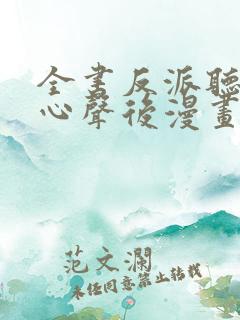 全書反派聽
心聲後漫畫
范文瀾
未經同意禁止轉載